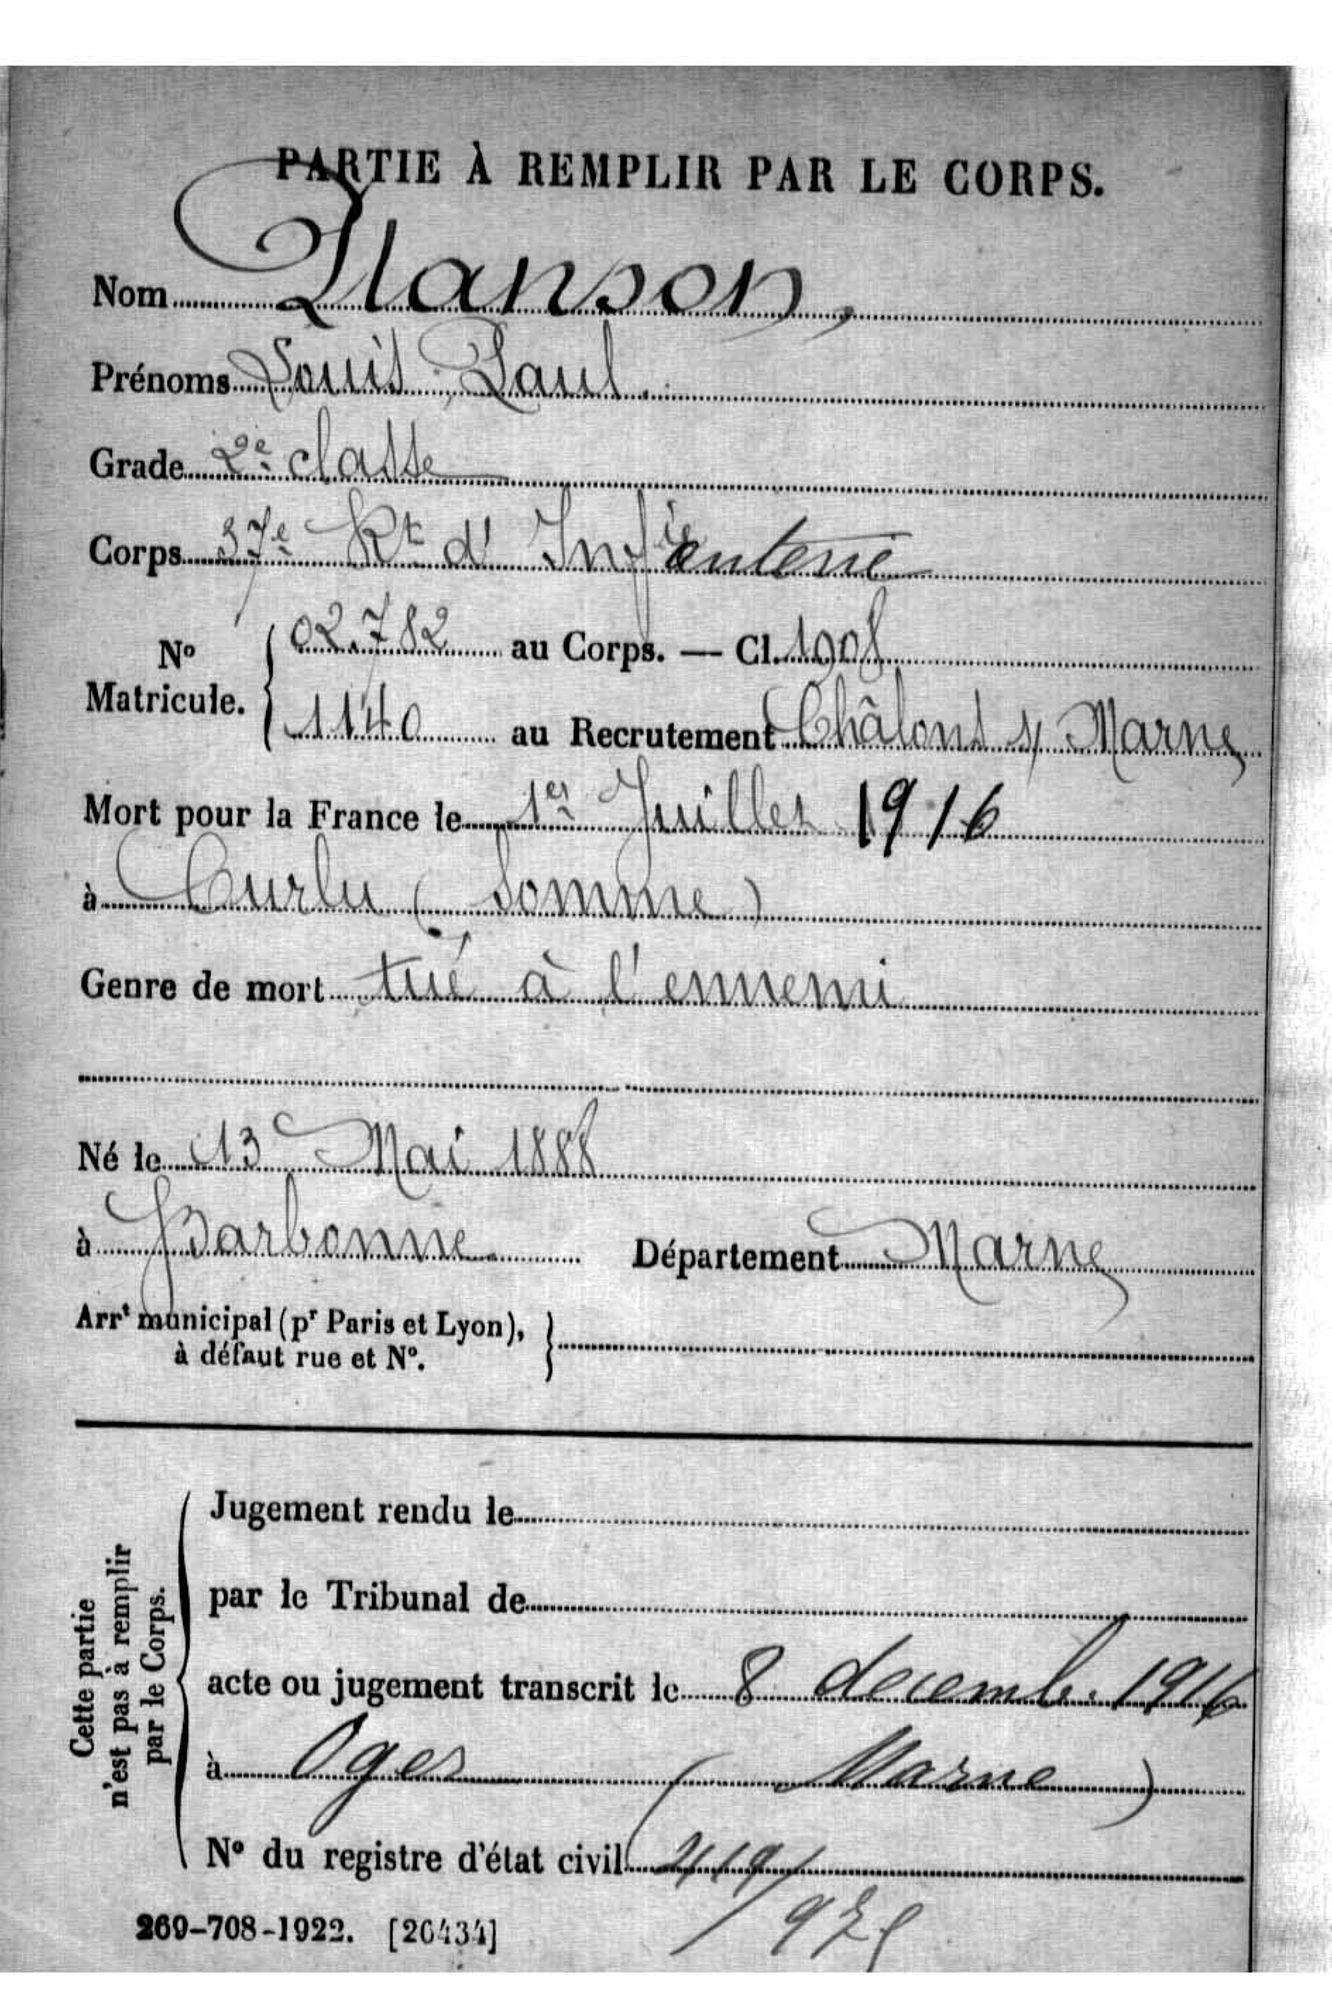 PARTIE À REMPLIR PAR LE CORPS.
Nom Planson,
Prénoms Louis Paul.
Grade 2e classe
Corps 37e Rt d' Infanterie
No Matricule. { 02.782 au Corps. — Cl. 1908
1140 au Recrutement Châlons s/ Marne
Mort pour la France le 1er Juillet 1916
à Curlu (Somme)
Genre de mort tué à l'ennemi
Né le 13 Mai 1888
à Barbonne Département Marne
Arrt municipal (pr Paris et Lyon), }
à défaut rue et No.
Cette partie
n'est pas à remplir
par le Corps.
Jugement rendu le
par le Tribunal de
acte ou jugement transcrit le 8 decemb. 1916
à Oger (Marne)
No du registre d'état civil
269-708-1922. [26434]